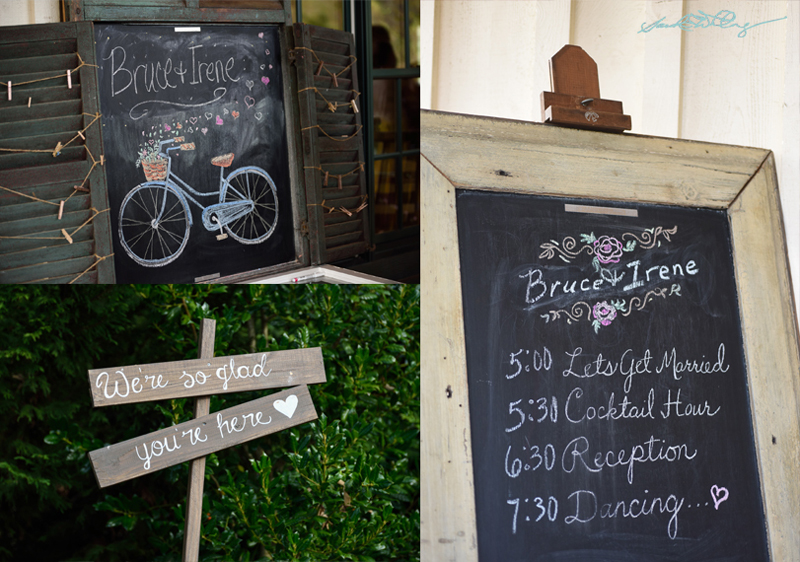 Bruce & Irene
We're so glad
you're here
Bruce & Irene
5:00 Lets Get Married
5:30 Cocktail Hour
6:30 Reception
7:30 Dancing...